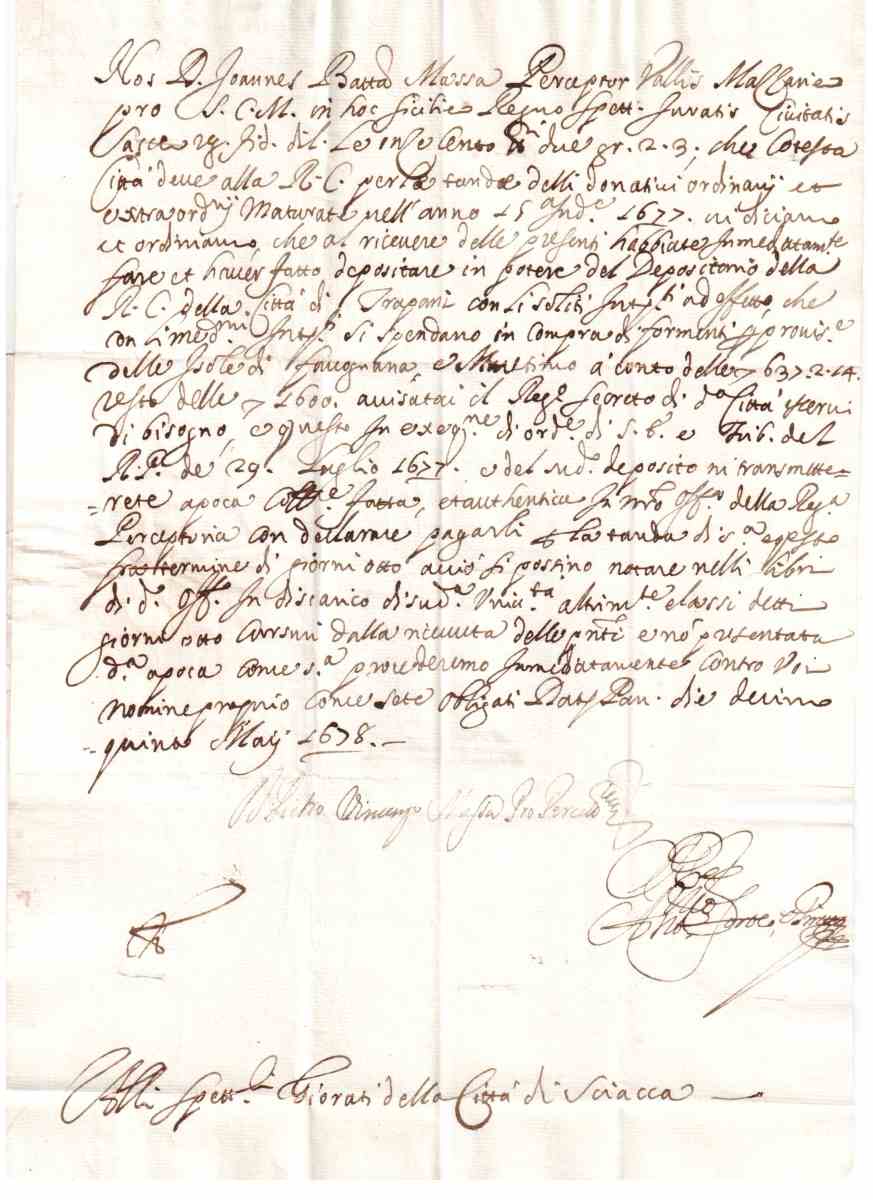 Nos D. Joannes Battã Massa Perceptor Vallis Mazzarie
pro S. C. M. in hoc sicilie Regno Spett. Juratis Civitatis
Sacce due gr. 2. 3, che Cotesta
Città deve alla R. C. per tande delli donativi ordinarij et
extraordrij Maturate nell'anno 15 a Inde 1677. vi diciamo
et ordiniamo, che al ricevere delle presenti habbiate Inmediatamte
fare et haver fatto depositare in potere del Depositario della
R. C. della Città di Trapani con li soliti ad effetto, che
si spendano in compra di formenti
delle Isole di Favognana, e a conto delle 637. 2. 14.
resto delle 1600. avisatai il Rege secreto di da Città
di bisogno, e questo In exeqne di orde di S. E. e Trib. del
R. P. de 29. Luglio 1677. e del sudo deposito ni transmitte=
=rete apoca fatta, et authentica In nro Offo della Rega
Perceptoria con declarare pagarsi la tanda di sa
termine di giorni otto acciò si possino notare nelli libri
di do Offo In discarico di suda Univta altrimte elassi detti
giorni otto cursuri dalla ricevuta delle pnti e nõ presentata
da apoca come sa procederemo Inmediatamente contro Voi
nomine proprio come sete obligati Dat. Pan. die decimo
=quinto Maij 1678.
Pietro Vincenzo Massa Pro
Alli Spett.li Giorati della Città di Sciacca